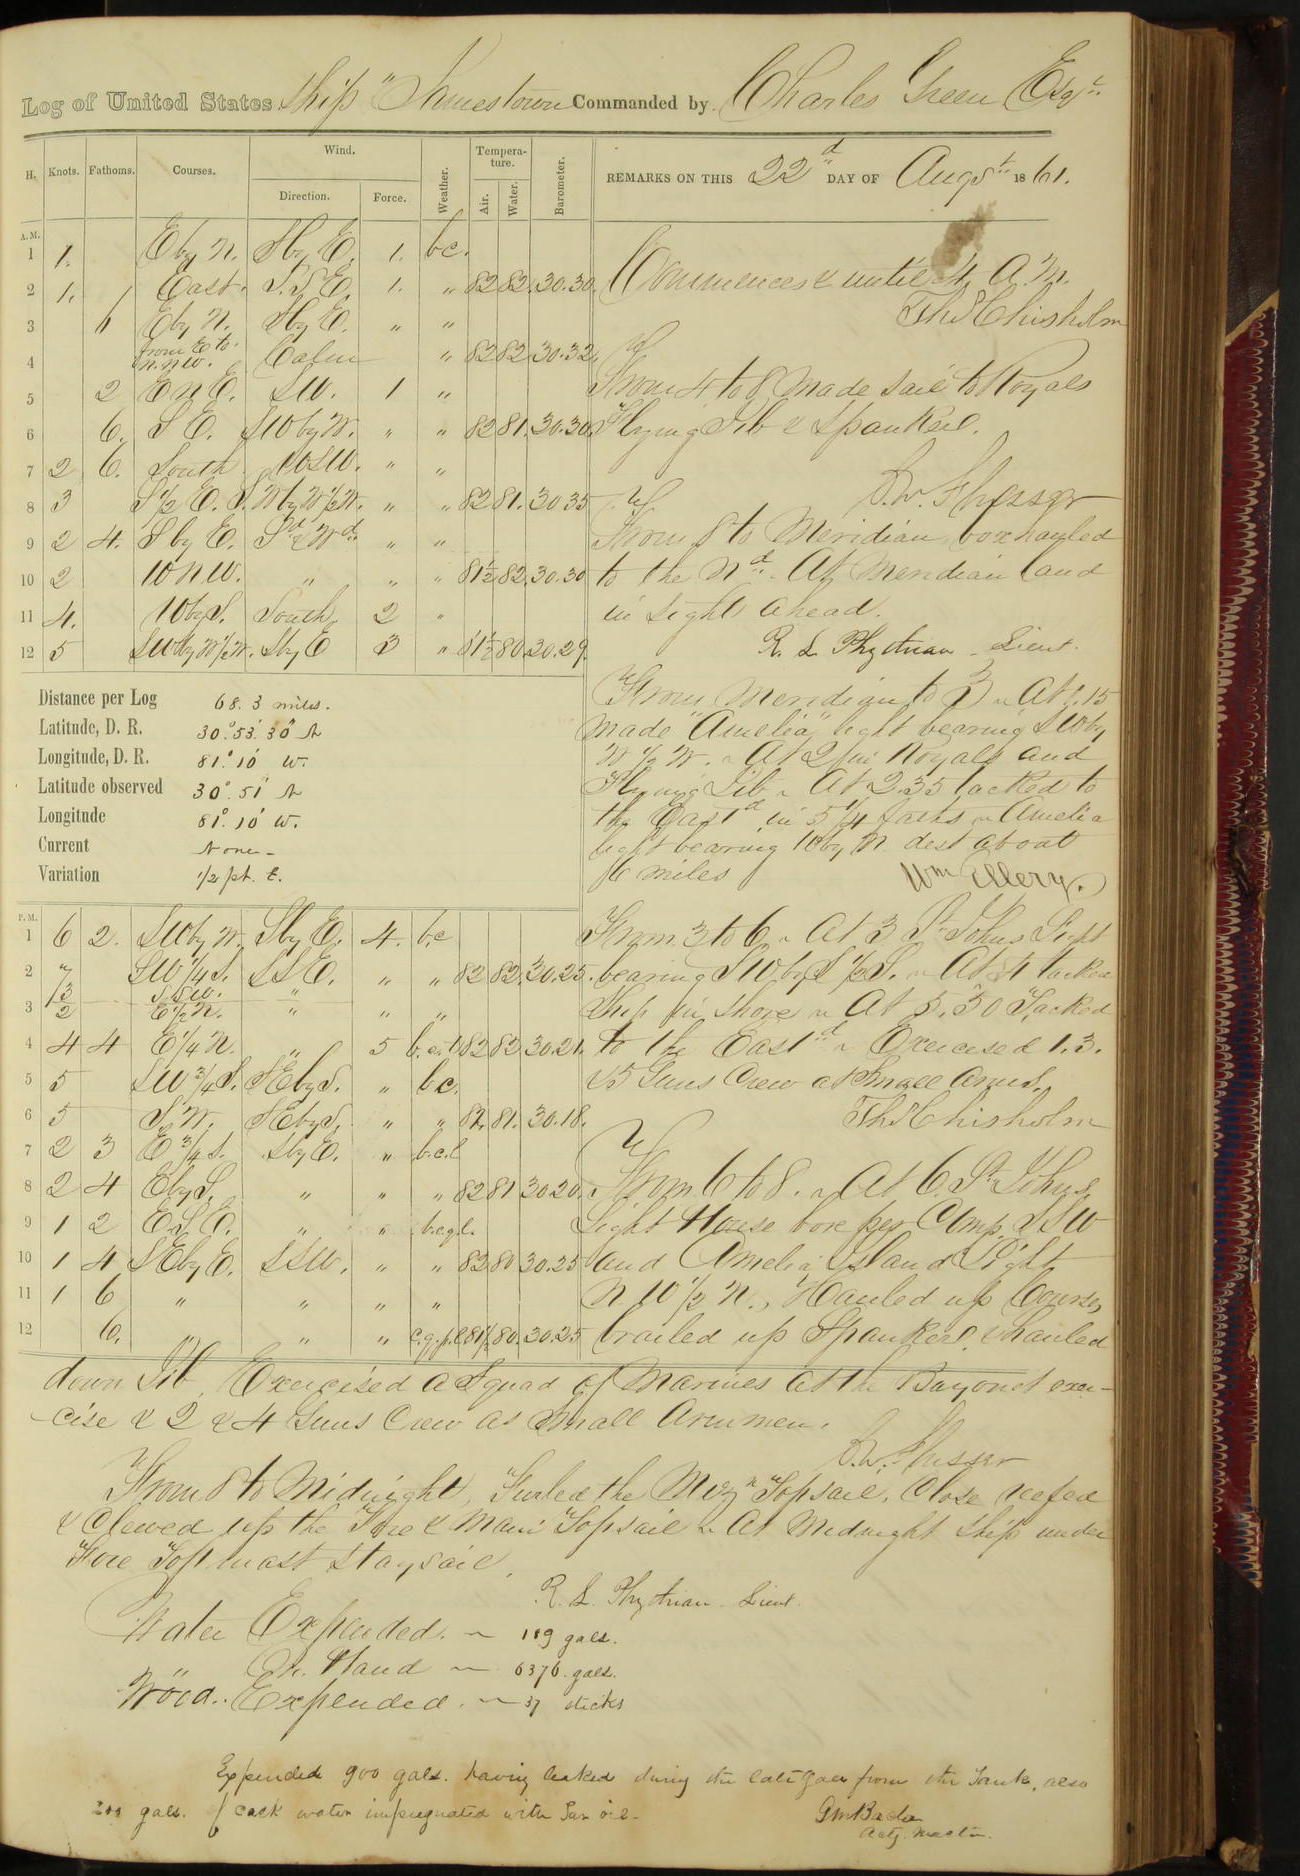 Log of United States Ship "Jamestown Commanded by Charles Green Esqr.
H. Knots. Fathoms. Courses. Wind. Direction. Force. Weather. Temperature. Air. Water. Barometer. REMARKS ON THIS 22d DAY OF Augst 1861.
A.M.
1 1. E by N. S by E. 1. b.c.
2 1. 1 East. S.S.E. 1. " 82 82. 30.30.
3 6 E by N. S by E. " "
4 from E to N.NW. Calm " 82 82 30.32
5 2 E N E. SW. 1 "
6 6. S E. SW by W. " " 82 81. 30.30
7 2 6. South WSW. " "
8 3 S 1/2 E. S.W by W 1/2 W. " " 82 81. 30 35
9 2 4. S by E. Sd & Wd " "
10 2 W N W. " " " 81 1/2 82. 30.30
11 4. W by S. South, 2 "
12 5 SW by W 1/2 W. S by E 3 " 81 1/2 80. 30.29.
Commences & until 4 A.M.
Thos Chisholm
From 4 to 8 Made sail to Royals
Flying Jib & Spanker.
From 8 to Meridian, box hauled
to the Nd. At Meridian land
in sight ahead.
R. L. Phythian Lieut.
Distance per Log 68.3 miles.
Latitude, D. R. 30°.53'.30" N
Longitude, D. R. 81° 10' W.
Latitude observed 30°. 51' N
Longitude 81°. 10' W.
Current None -
Variation 1/2 pt. E.
From Meridian to 3 " At 1.15
made "Amelia" light bearing SW by
W 1/2 W. " At 2 in Royals and
Flying Jib " At 2.35 tacked to
the Eastd in 5 1/4 faths " Amelia
light bearing W by N dist about
6 miles
Wm Ellery.
P.M.
1 6 2. SW by W. S by E. 4. b.c
2 7 SW 1/4 S. SSE. " " 82 82. 30.25.
3 3 2 S SW. E 1/2 N. " " "
4 4 4 E 1/4 N. " 5 b.c. 82 82. 30.21.
5 5 SW 3/4 S. SE by S. " b.c.
6 5 S W. SE by S. " " 82. 81. 30.18.
7 2 3 E 3/4 S. S by E. " b.c.l
8 2 4 E by S. " " " 82 81 30.20.
9 1 2 E.S.E. " " b.c.q.l.
10 1 4 SE by E. SSW. " " 82 80 30.25
11 1 6 " " " "
12 6. " " " c.q.p.l 81 1/2 80. 30.25
From 3 to 6 " At 3 St Johns Light
bearing SW by S 1/2 S. " At 4 tacked
Ship in shore " At 5.30 Tacked
to the Eastd " Exercised 1. 3.
& 5 Guns Crew at Small Arms.
Thos Chisholm
From 6 to 8. " At 6. St Johns,
Light House bore per Comp. SSW
and Amelia Island Light
N W 1/2 N., Hauled up Courses,
brailed up Spanker, & hauled
down Jib, Exercised a Squad of Marines at the Bayonet exer-
-cise & 2 & 4 Guns Crew as Small Arm men.
From 8 to Midnight, Furled the Mizn Topsail, Close reefed
& Clewed up the Fore & Main Topsail " At Midnight Ship under
Fore Topmast Staysail,
R. L. Phythian Lieut.
Water Expended. " 119 gals.
On Hand " 6376 gals.
Wood.. Expended. " 37 sticks
Expended 900 gals. having leaked during the late Gale from the Tank, also
200 gals. of cask water impregnated with oil -
Actg. Master.